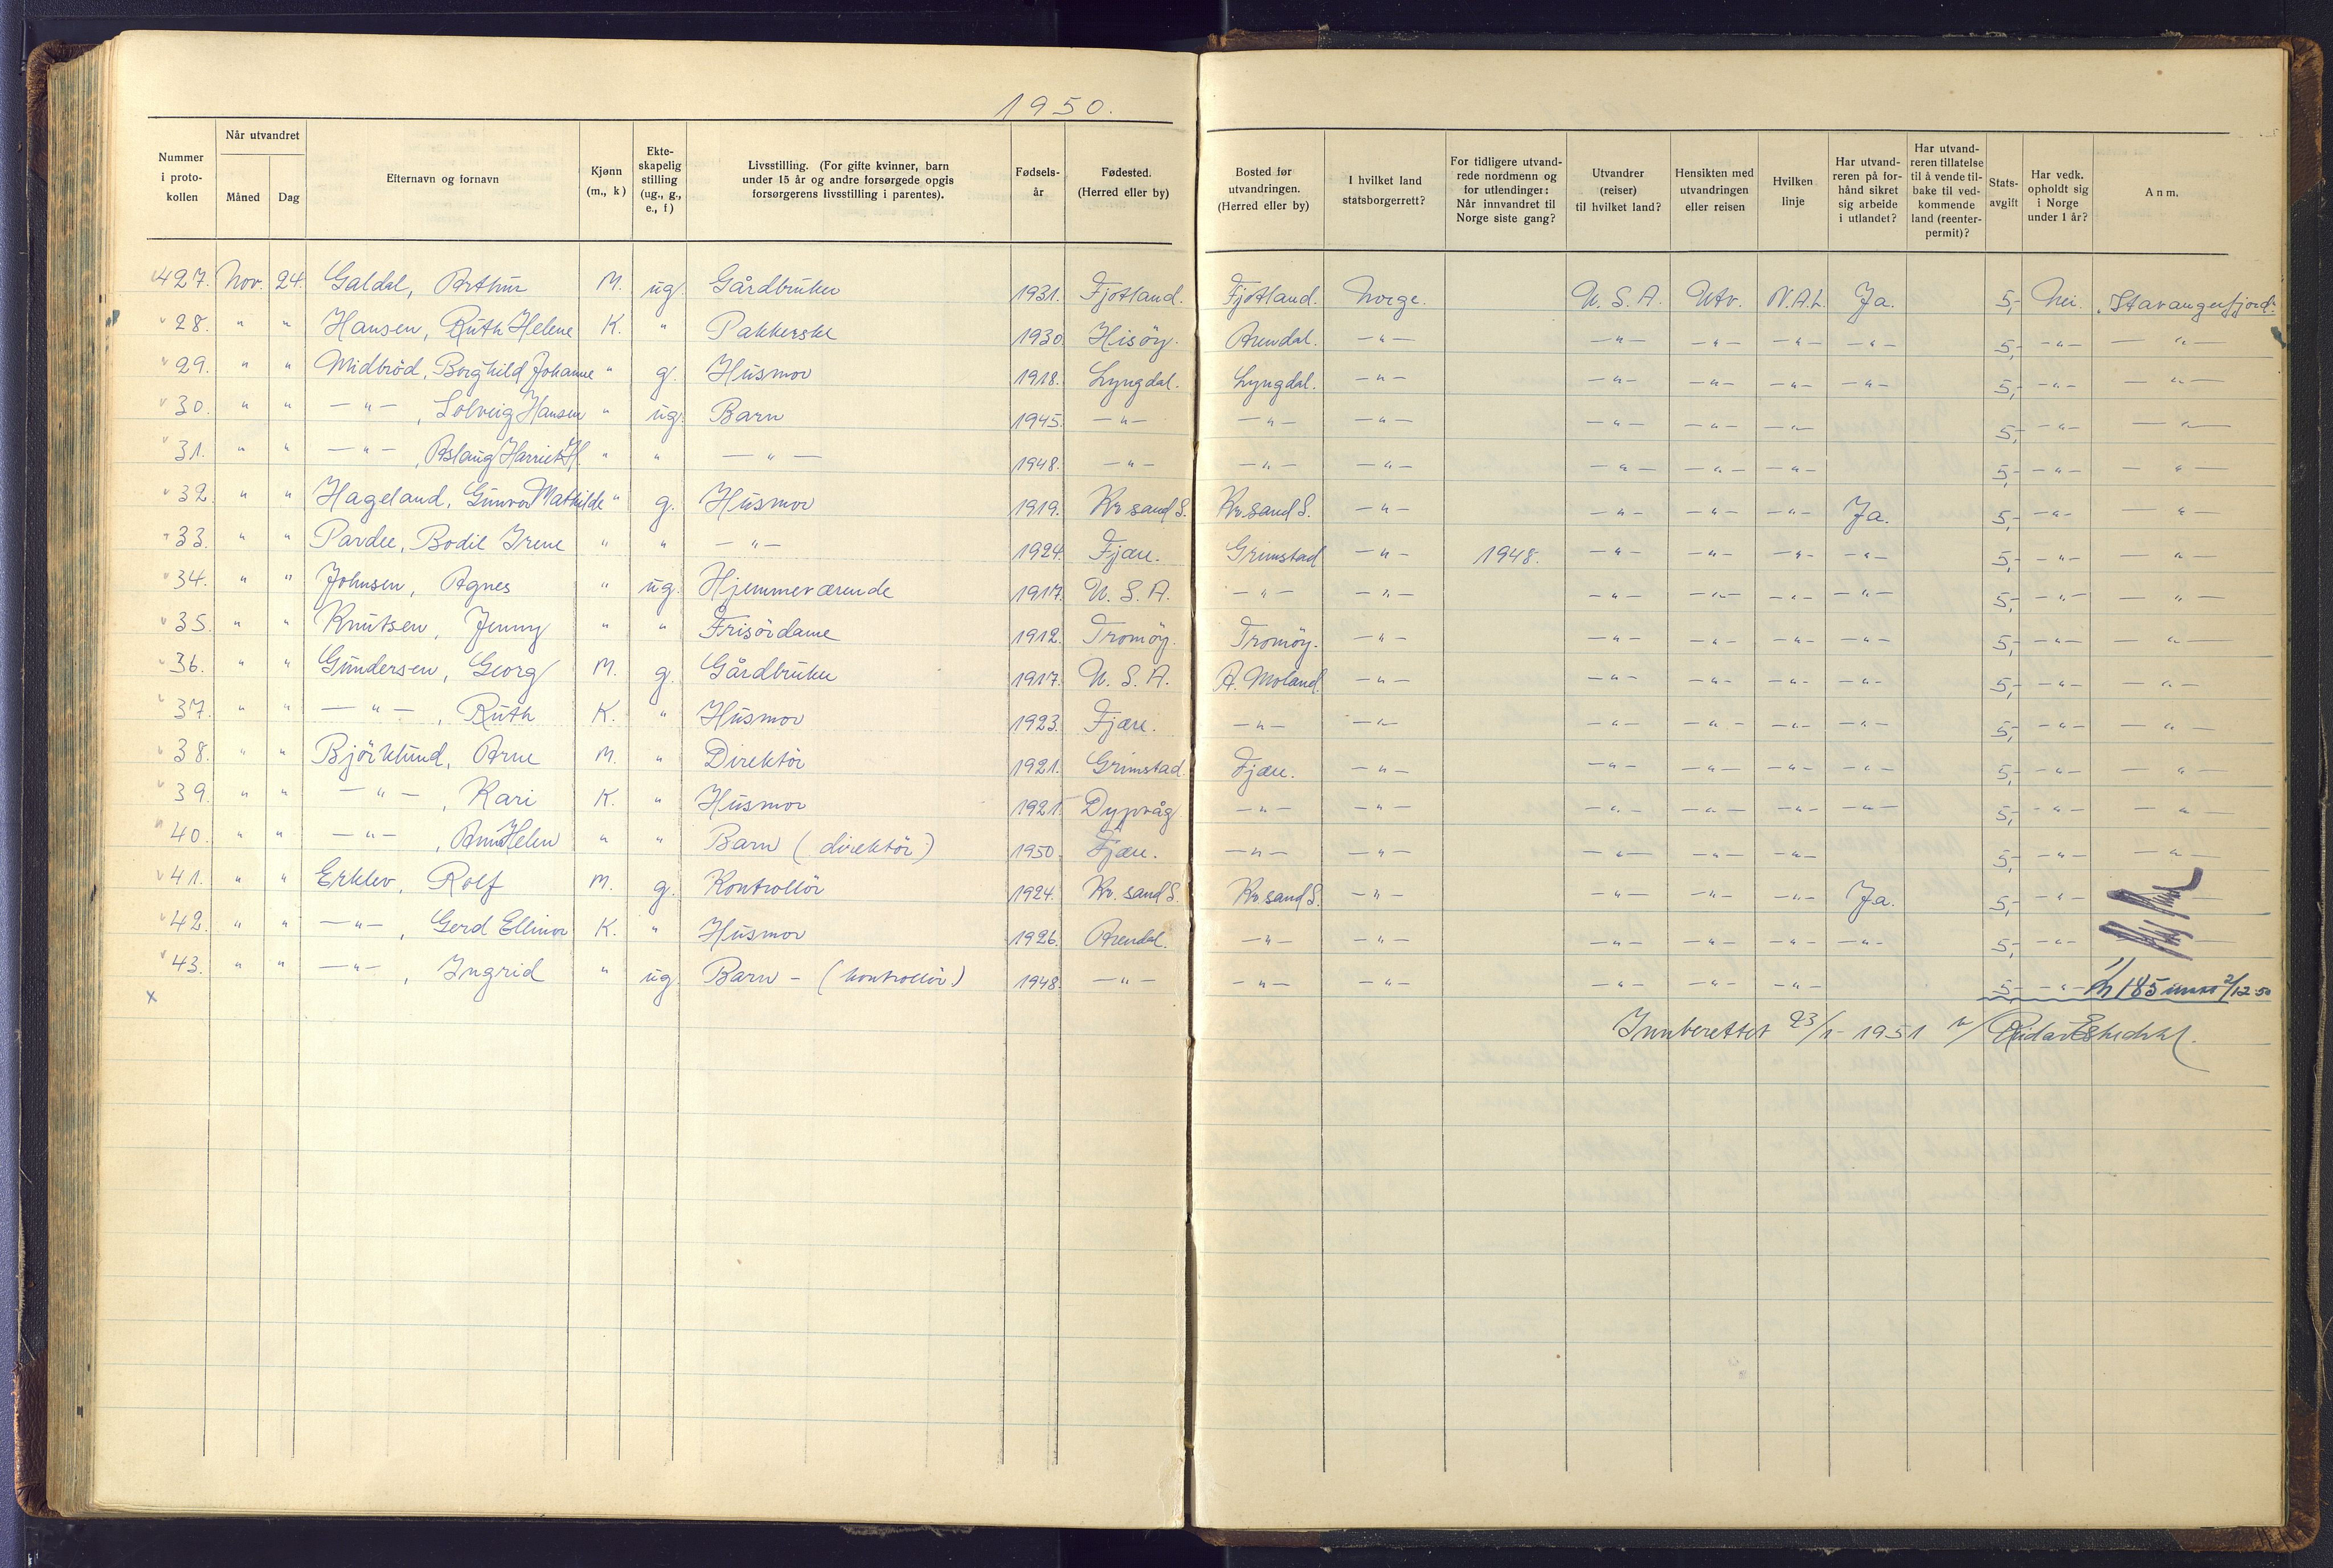 1950.
Nummer i protokollen | Når utvandret Måned | Dag | Efternavn og fornavn | Kjønn (m., k) | Ekteskapelig stilling (ug., g., e., f) | Livsstilling. (For gifte kvinner, barn under 15 år og andre forsørgede opgis forsørgerens livsstilling i parentes). | Fødselsår | Fødested. (Herred eller by) | Bosted før utvandringen. (Herred eller by) | I hvilket land statsborgerrett? | For tidligere utvandrede nordmenn og for utlendinger: Når innvandret til Norge siste gang? | Utvandrer (reiser) til hvilket land? | Hensikten med utvandringen eller reisen | Hvilken linje | Har utvandreren på forhånd sikret sig arbeide i utlandet? | Har utvandreren tillatelse til å vende tilbake til vedkommende land (reenterpermit)? | Statsavgift | Har vedk. opholdt sig i Norge under 1 år? | Anm.
427. Nov. 24. Galdal, Arthur M. ug. Gårdbruker 1931. Fjotland. Fjotland. Norge. U.S.A. Utv. N.A.L. Ja. 5,- Nei. "Stavangerfjord"
28. " " Hansen, Ruth Helene K. " Pakkerske 1930. Hisöy. Arendal. —"— —"— —"— —"— —"— 5,- —"— —"—
29. " " Midbröd, Borghild Johanne " g. Husmor 1918. Lyngdal. Lyngdal. —"— —"— —"— —"— —"— 5,- —"— —"—
30. " " —"—, Solveig Hansen " ug. Barn 1945. —"— —"— —"— —"— —"— —"— 5,- —"— —"—
31. " " —"—, Aslaug Harriet H. " " —"— 1948. —"— —"— —"— —"— —"— —"— 5,- —"— —"—
32. " " Hageland, Gunvor Mathilde " g. Husmor 1919. Kr.sand S. Kr.sand S. —"— —"— —"— —"— Ja. 5,- —"— —"—
33. " " Pardee, Bodil Irene " " —"— 1924. Fjære. Grimstad —"— 1948. —"— —"— —"— —"— 5,- —"— —"—
34. " " Johnsen, Agnes " ug. Hjemmeværende 1917. U.S.A. —"— —"— —"— —"— —"— —"— 5,- —"— —"—
35. " " Knutsen, Jenny " " Frisördame 1912. Tromöy. Tromöy. —"— —"— —"— —"— —"— 5,- —"— —"—
36. " " Gundersen, Georg M. g. Gårdbruker 1917. U.S.A. A. Moland. —"— —"— —"— —"— —"— 5,- —"— —"—
37. " " —"—, Ruth K. " Husmor 1923. Fjære. —"— —"— —"— —"— —"— —"— 5,- —"— —"—
38. " " Björklund, Arne M. " Direktör 1921. Grimstad. Fjære. —"— —"— —"— —"— —"— 5,- —"— —"—
39. " " —"—, Kari K. " Husmor 1921. Dypvåg —"— —"— —"— —"— —"— —"— 5,- —"— —"—
40. " " —"—, Ann Helen " " Barn (direktör) 1950. Fjære. —"— —"— —"— —"— —"— 5,- —"— —"—
41. " " Erklev, Rolf M. g. Kontrollör 1924. Kr.sand S. Kr.sand S. —"— —"— —"— —"— Ja. 5,- —"—
42. " " —"—, Gerd Ellinor K. " Husmor 1926. Arendal. —"— —"— —"— —"— —"— —"— 5,- —"—
43. " " —"—, Ingrid " ug. Barn - (kontrollör) 1948. —"— —"— —"— —"— —"— —"— 5,- —"— 185 2/12-50
x
Innberettet 23/1-1951